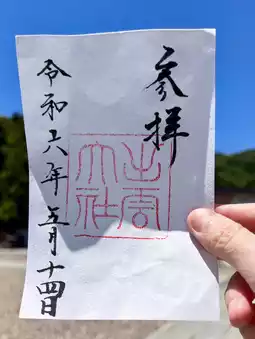 参拝
出雲
大社
令和六年五月十四日